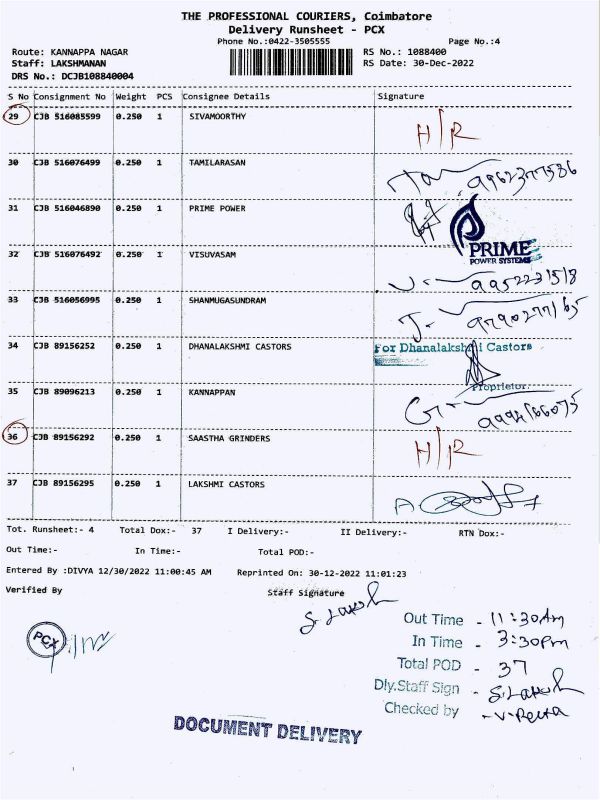 THE PROFESSIONAL COURIERS, Coimbatore
Delivery Runsheet - PCX
Phone No.:0422-3505555
Page No.:4
Route: KANNAPPA NAGAR
RS No.: 1088400
Staff: LAKSHMANAN
RS Date: 30-Dec-2022
DRS No.: DCJB108840004
S No Consignment No Weight PCS Consignee Details Signature
29 CJB 516085599 0.250 1 SIVAMOORTHY H/R
30 CJB 516076499 0.250 1 TAMILARASAN 9962377586
31 CJB 516046890 0.250 1 PRIME POWER
PRIME
POWER SYSTEMS
32 CJB 516076492 0.250 1 VISUVASAM 9952231518
33 CJB 516056995 0.250 1 SHANMUGASUNDRAM 9790277165
34 CJB 89156252 0.250 1 DHANALAKSHMI CASTORS For Dhanalakshmi Castors
Proprietor.
35 CJB 89096213 0.250 1 KANNAPPAN
36 CJB 89156292 0.250 1 SAASTHA GRINDERS H/R
37 CJB 89156295 0.250 1 LAKSHMI CASTORS
Tot. Runsheet:- 4 Total Dox:- 37 I Delivery:- II Delivery:- RTN Dox:-
Out Time:- In Time:- Total POD:-
Entered By :DIVYA 12/30/2022 11:00:45 AM Reprinted On: 30-12-2022 11:01:23
Verified By Staff Signature
S. Laksh
PCX
Out Time - 11:30Am
In Time - 3:30pm
Total POD - 37
Dly.Staff Sign - S. Laksh
Checked by
DOCUMENT DELIVERY